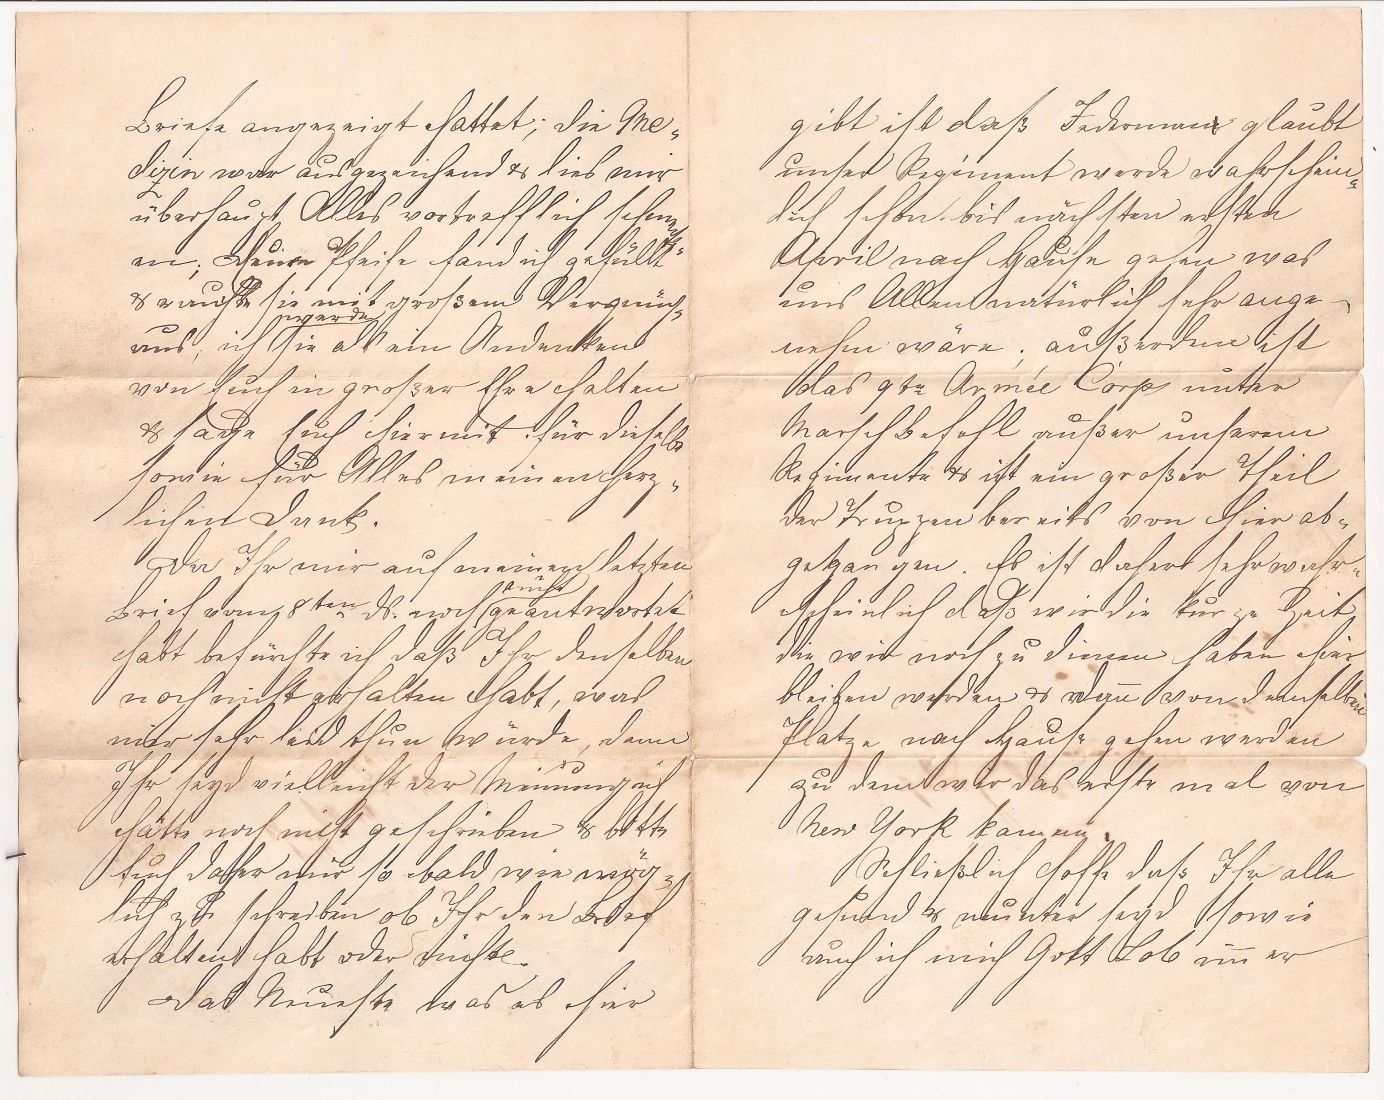 Briefe angezeigt hattet; die Me-
dizin war ausgezeichend & lies mir
überhaupt Alles vortrefflich schmeck-
en; Deine Pfeife fand ich gefüllt
& rauchte sie mit großem Vergnüg-
aus, ich werde sie als ein Andenken
von Euch in großer Ehre halten
& sage Euch hiermit für dieselbe
sowie für Alles meinen herz-
lichen Dank.
Da Ihr mir auf meinen letzten
Brief vom 8ten ds. noch nicht geantwortet
habt befürchte ich daß Ihr denselben
noch nicht erhalten habt, was
mir sehr leid thun würde, denn
Ihr seyd vielleicht der Meinung ich
hätte noch nicht geschrieben & bitte
Euch daher mir so bald wie mög-
lich zu schreiben ob Ihr den Brief
erhalten habt oder nicht.
Das Neueste was es hier
gibt ist daß Jedermann glaubt
unser Regiment werde wahrschein-
lich schon bis nächsten ersten
April nach Hause gehen was
uns Allen natürlich sehr ange-
nehm wäre; außerdem ist
das 9te Armée Corps unter
Marschbefehl außer unserem
Regimente & ist ein großer Theil
der Truppen bereits von hier ab-
gegangen. Es ist daher sehr wahr-
scheinlich daß wir die kurze Zeit
die wir noch zu dienen haben hier
bleiben werden & dann von demselben
Platze nach Hause gehen werden
zu dem wir das erste mal von
New York kamen.
Schließlich hoffe daß Ihr alle
gesund & munter seyd sowie
auch ich mich Gott Lob immer